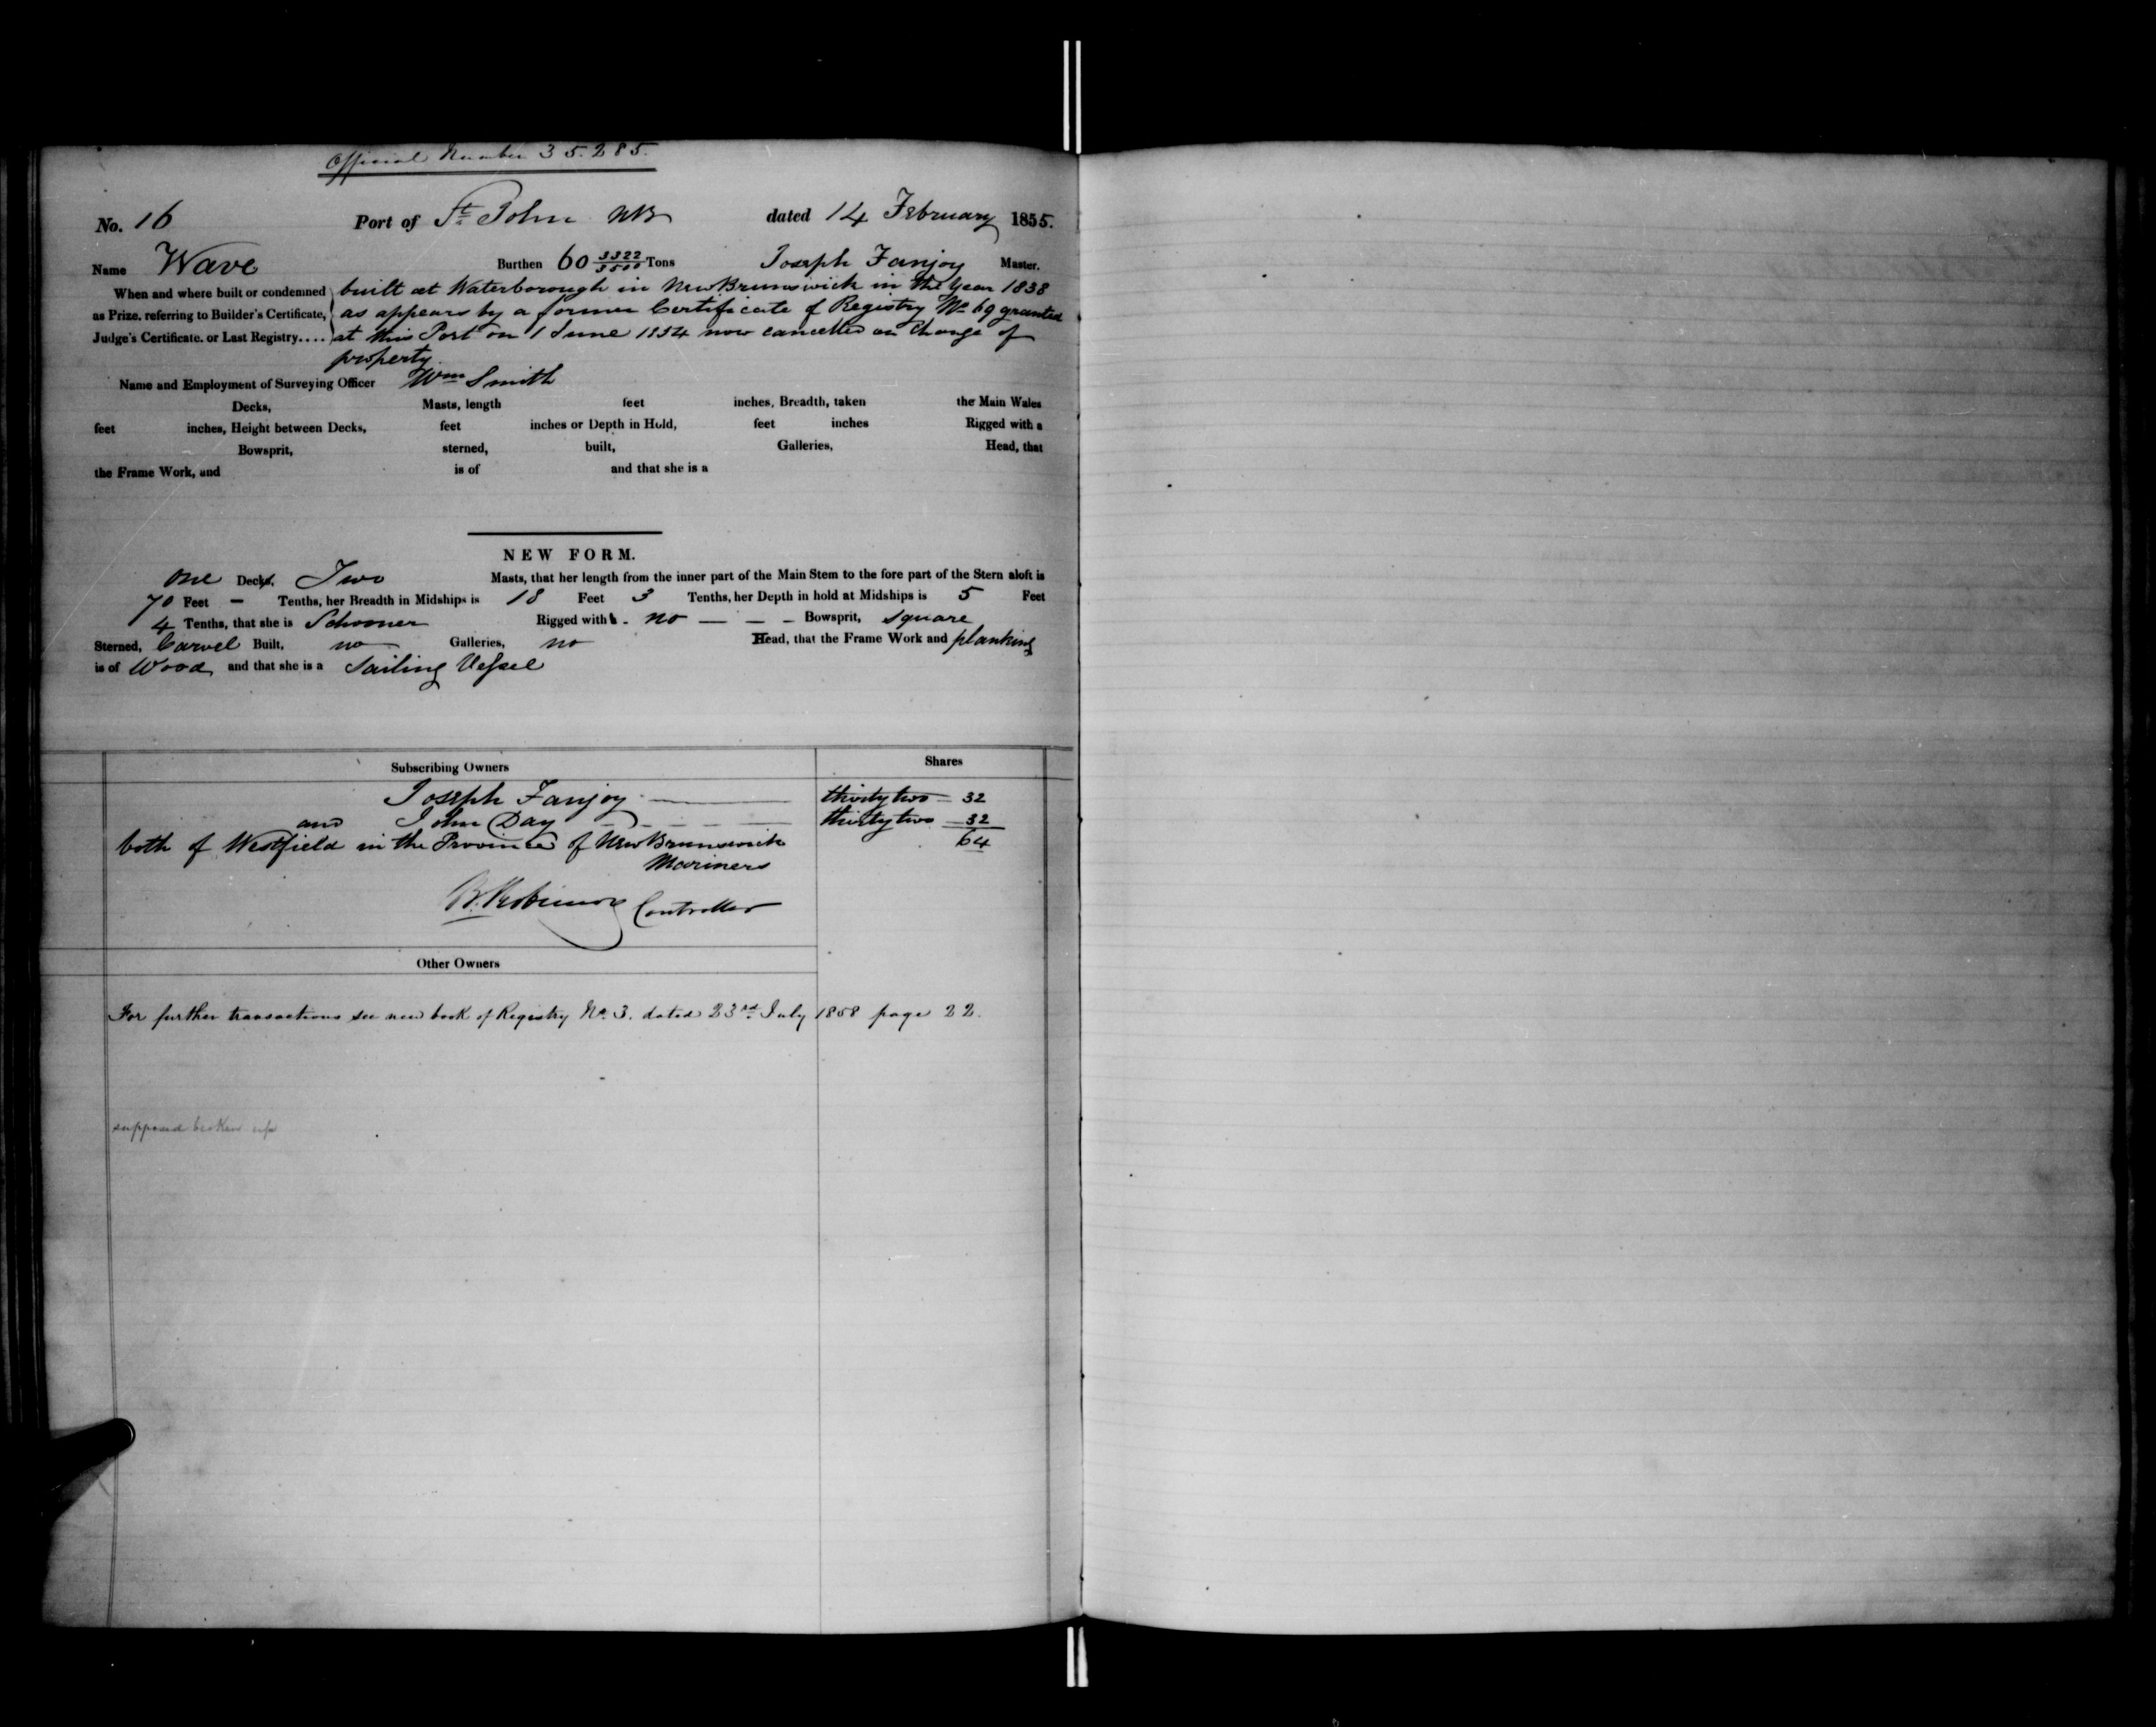 Official Number 35.285.
No. 16 Port of St. John NB dated 14 February 1855.
Name Wave Burthen 60 3322/3500 Tons Joseph Fanjoy Master.
When and where built or condemned built at Waterborough in New Brunswick in the Year 1838
as Prize, referring to Builder's Certificate, as appears by a former Certificate of Registry No. 69 granted
Judge's Certificate. or Last Registry.... at this Port on 1 June 1854 now cancelled on Change of
property
Name and Employment of Surveying Officer Wm Smith
Decks, Masts, length feet inches, Breadth, taken the Main Wales
feet inches, Height between Decks, feet inches or Depth in Hold, feet inches Rigged with a
Bowsprit, sterned, built, Galleries, Head, that
the Frame Work, and is of and that she is a
NEW FORM.
One Deck, Two Masts, that her length from the inner part of the Main Stem to the fore part of the Stern aloft is
70 Feet — Tenths, her Breadth in Midships is 18 Feet 3 Tenths, her Depth in hold at Midships is 5 Feet
4 Tenths, that she is Schooner Rigged with - no — — — Bowsprit, square
Sterned, Carvel Built, no Galleries, no Head, that the Frame Work and planking
is of Wood and that she is a Sailing Vessel
Subscribing Owners Shares
Joseph Fanjoy thirty two — 32
and John Day thirty two — 32
both of Westfield in the Province of New Brunswick 64
Mariners
B. Robinson Controller
Other Owners
For further transactions see new book of Registry No. 3. dated 23rd July 1858 page 22.
supposed broken up